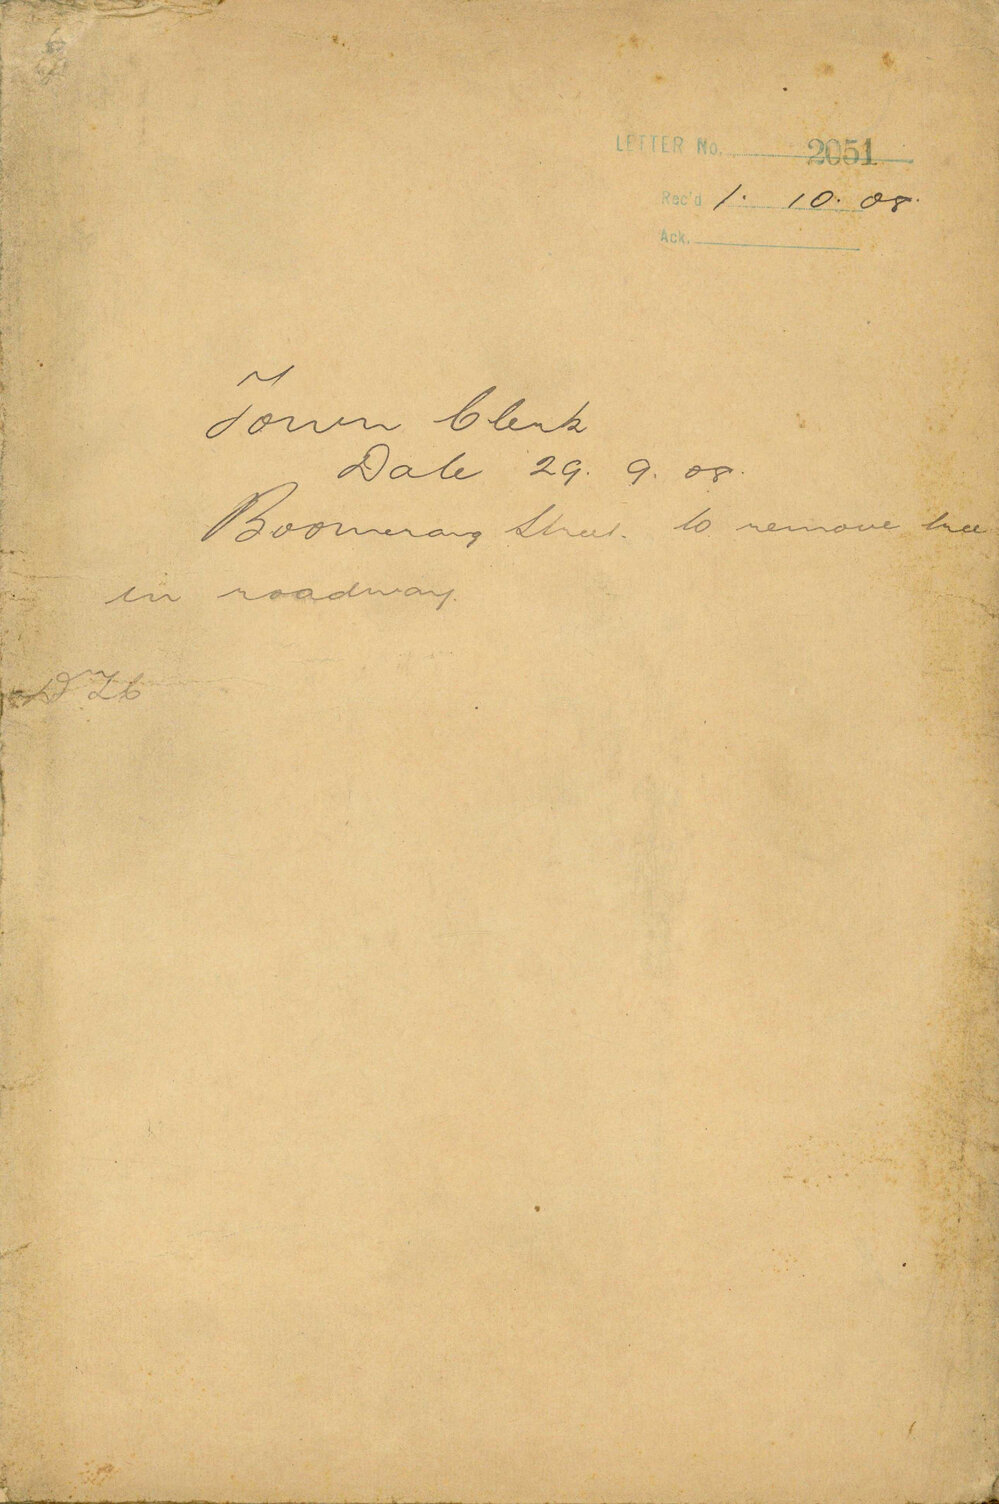 LETTER No. 2051
Rec'd 1. 10. 08.
Ack.
Town Clerk
Date 29. 9. 08.
Boomerang Street. to remove tree
in roadway.